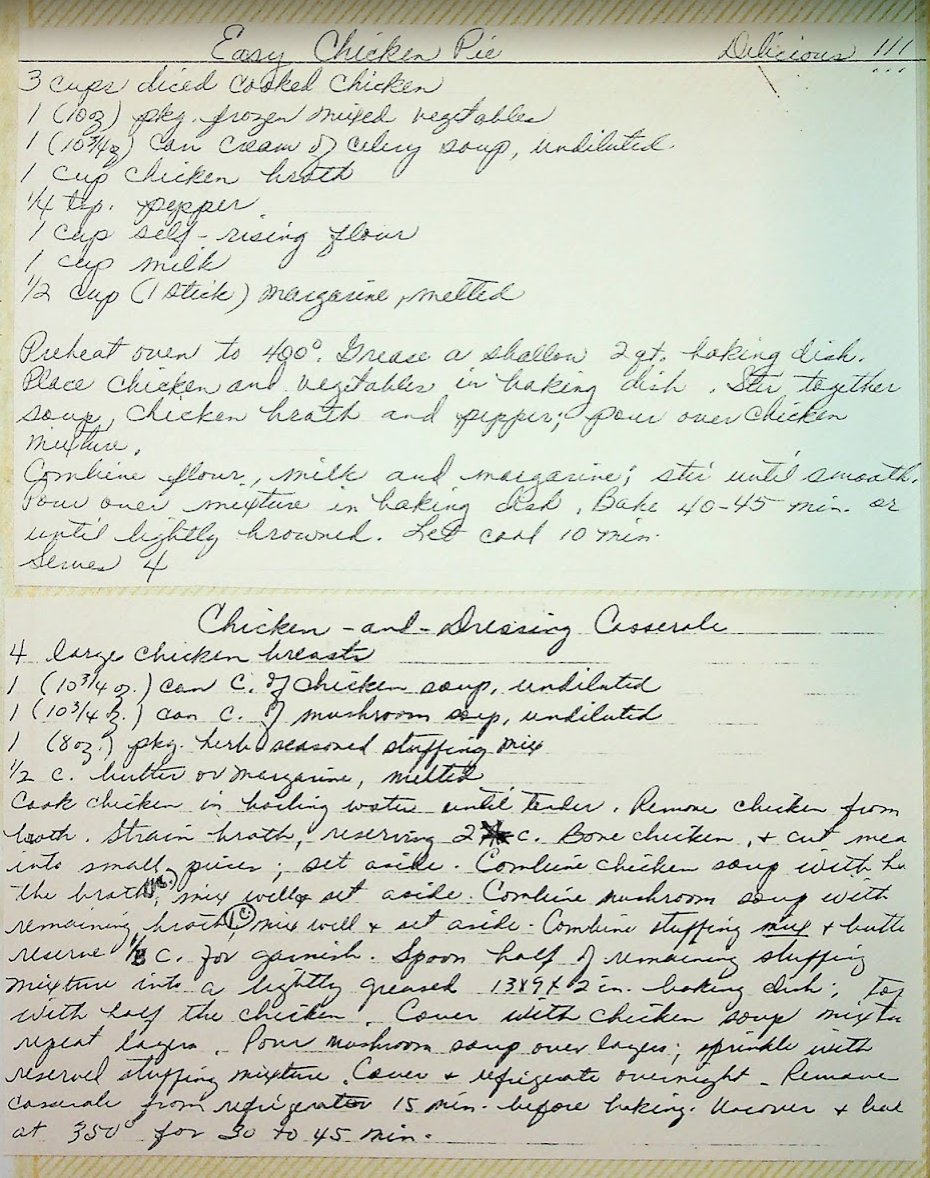 Easy Chicken Pie Delicious !!!
3 cups diced cooked chicken
1 (10oz) pkg. frozen mixed vegetables
1 (10 3/4oz) can cream of celery soup, undiluted
1 cup chicken broth
1/4 tsp. pepper
1 cup self-rising flour
1 cup milk
1/2 cup (1 stick) margarine, melted
Preheat oven to 400°. Grease a shallow 2 qt. baking dish.
Place chicken and vegetables in baking dish. Stir together
soup, chicken broth and pepper; pour over chicken
mixture.
Combine flour, milk and margarine; stir until smooth.
Pour over mixture in baking dish. Bake 40-45 min. or
until lightly browned. Let cool 10 min.
Serves 4
Chicken-and-Dressing Casserole
4 large chicken breasts
1 (10 3/4 oz.) can C. of chicken soup, undiluted
1 (10 3/4 oz.) can C. of mushroom soup, undiluted
1 (8oz.) pkg. herb seasoned stuffing mix
1/2 c. butter or margarine, melted
Cook chicken in boiling water until tender. Remove chicken from
broth. Strain broth, reserving 2 c. Bone chicken, + cut mea
into small pieces; set aside. Combine chicken soup with ha
the broth, (1c.) mix well & set aside. Combine mushroom soup with
remaining broth, (1c) mix well + set aside. Combine stuffing mix + butte
reserve c. for garnish. Spoon half of remaining stuffing
mixture into a lightly greased 13x9x2 in. baking dish; top
with half the chicken. Cover with chicken soup mixtu
repeat layers. Pour mushroom soup over layers; sprinkle with
reserved stuffing mixture. Cover + refrigerate overnight. Remove
casserole from refrigerator 15 min. before baking. Uncover + bak
at 350° for 30 to 45 min.